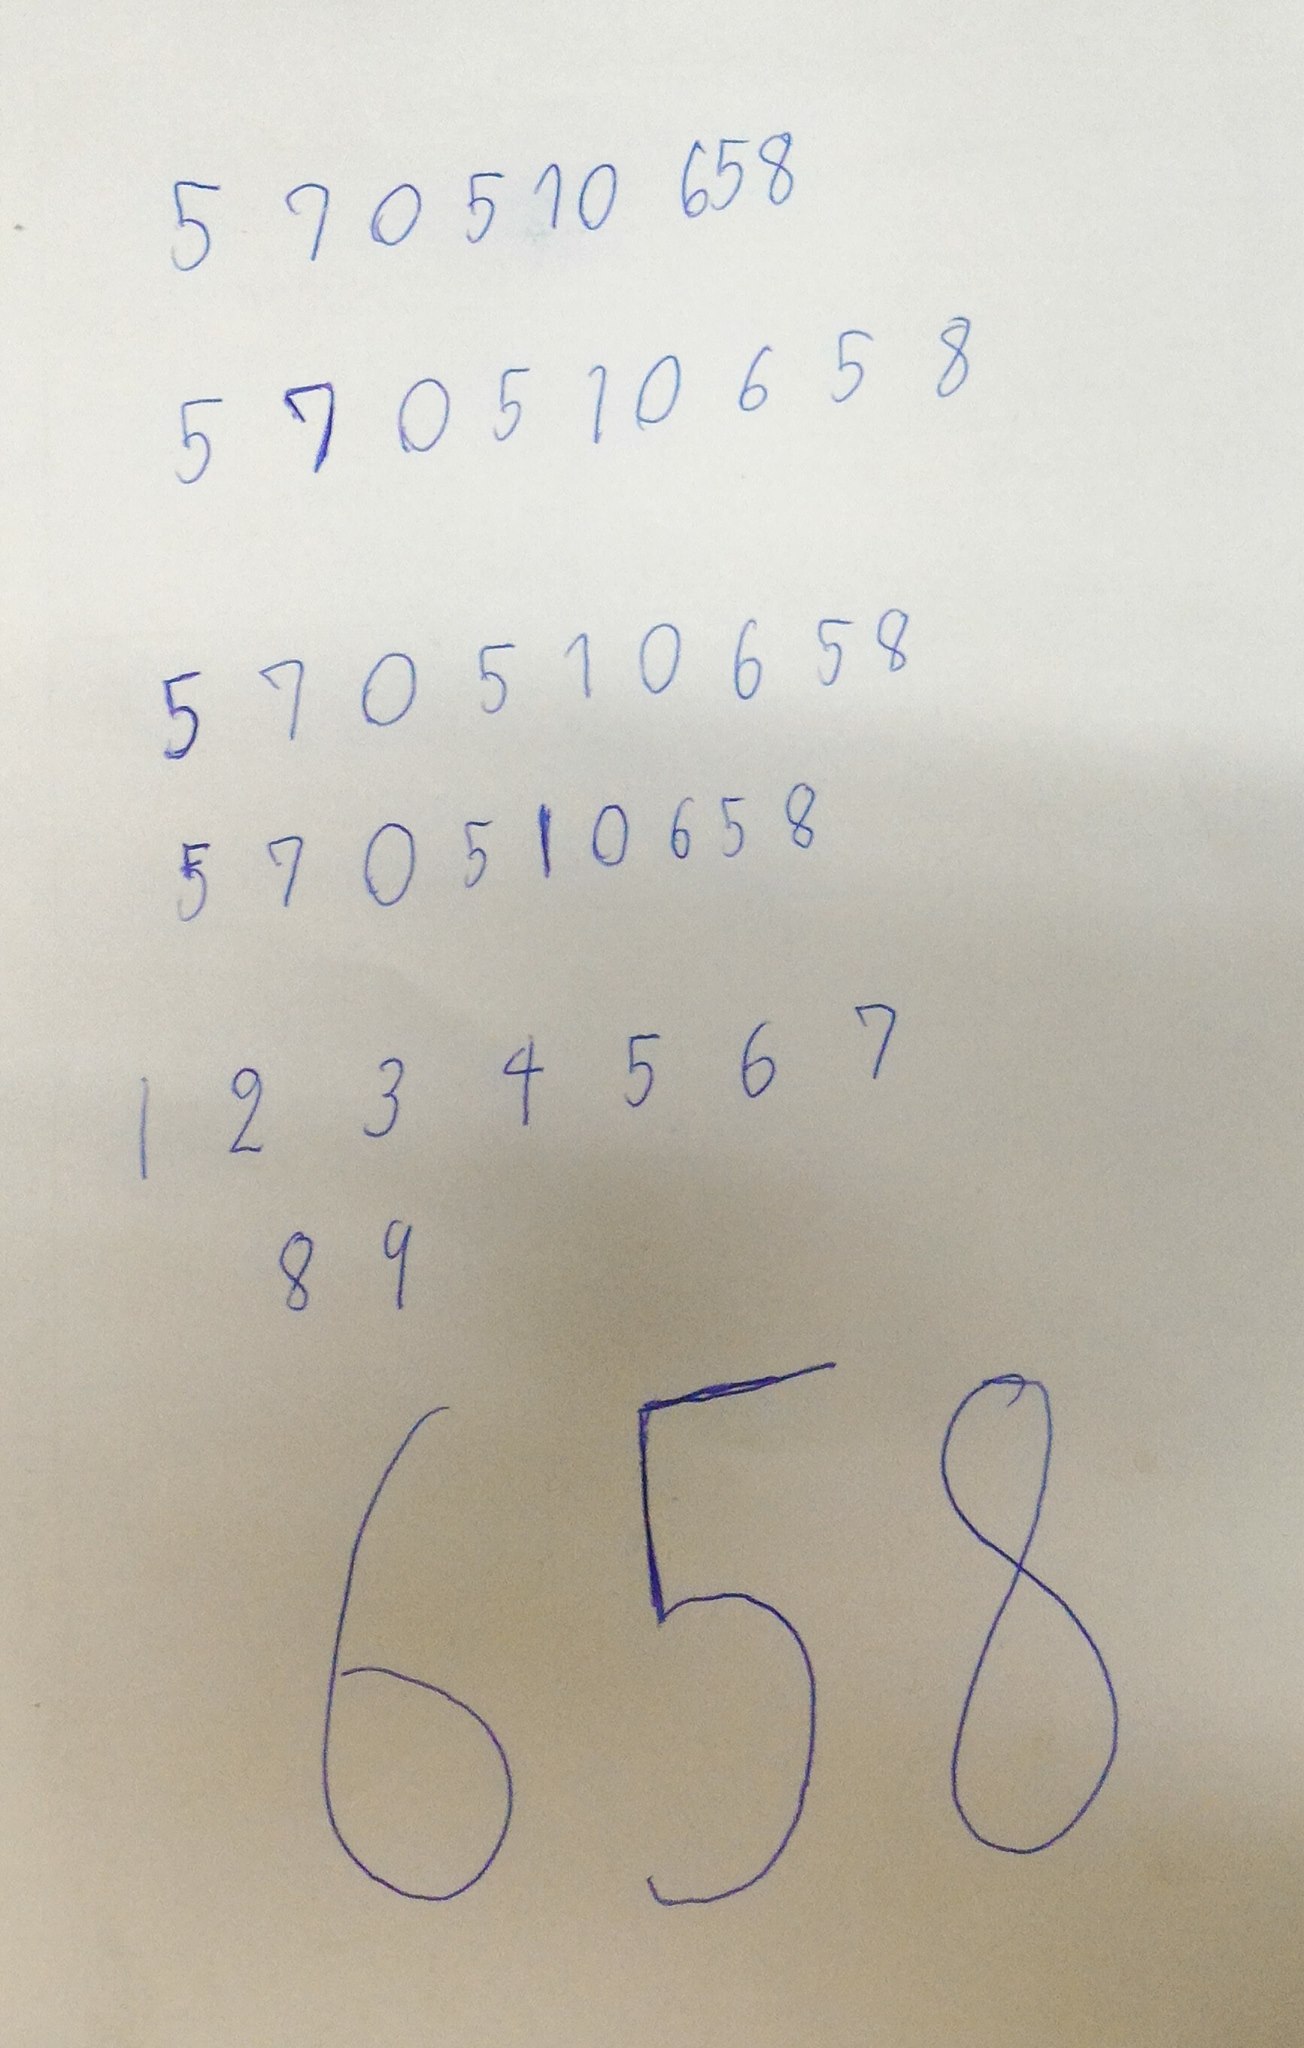 5 7 0 5 10 658
5 7 0 5 1 0 6 5 8
5 7 0 5 1 0 6 5 8
5 7 0 5 1 0 6 5 8
1 2 3 4 5 6 7
8 9
6 5 8